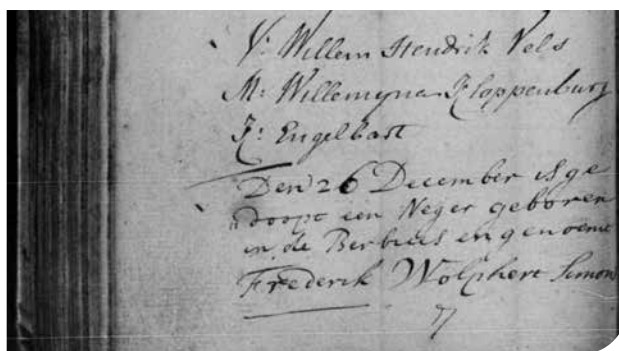 V: Willem Hendrik Vels
M: Willemyna Kloppenburg
K: Engelbart
Den 26 December is ge
doopt een Neger geboren
in de Berbices en genoemt
Frederik Wolphert Simon